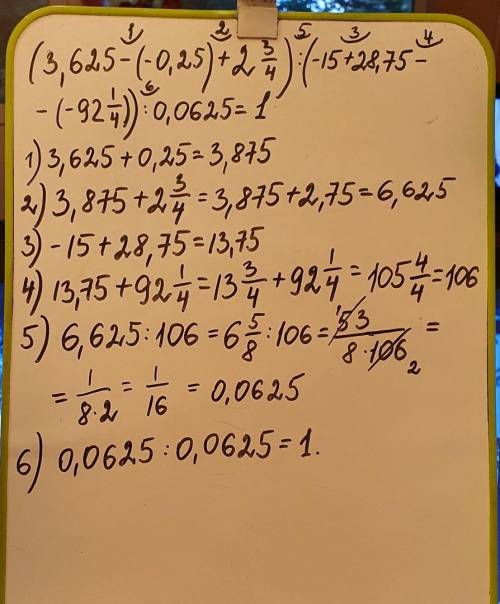 (3,625-(-0,25)+2 3/4):(-15+28,75-
-(-92 1/4)):0,0625=1
1) 3,625+0,25=3,875
2) 3,875+2 3/4=3,875+2,75=6,625
3) -15+28,75=13,75
4) 13,75+92 1/4=13 3/4+92 1/4=105 4/4=106
5) 6,625:106=6 5/8:106=53/(8·106)=
=1/(8·2)=1/16=0,0625
6) 0,0625:0,0625=1.